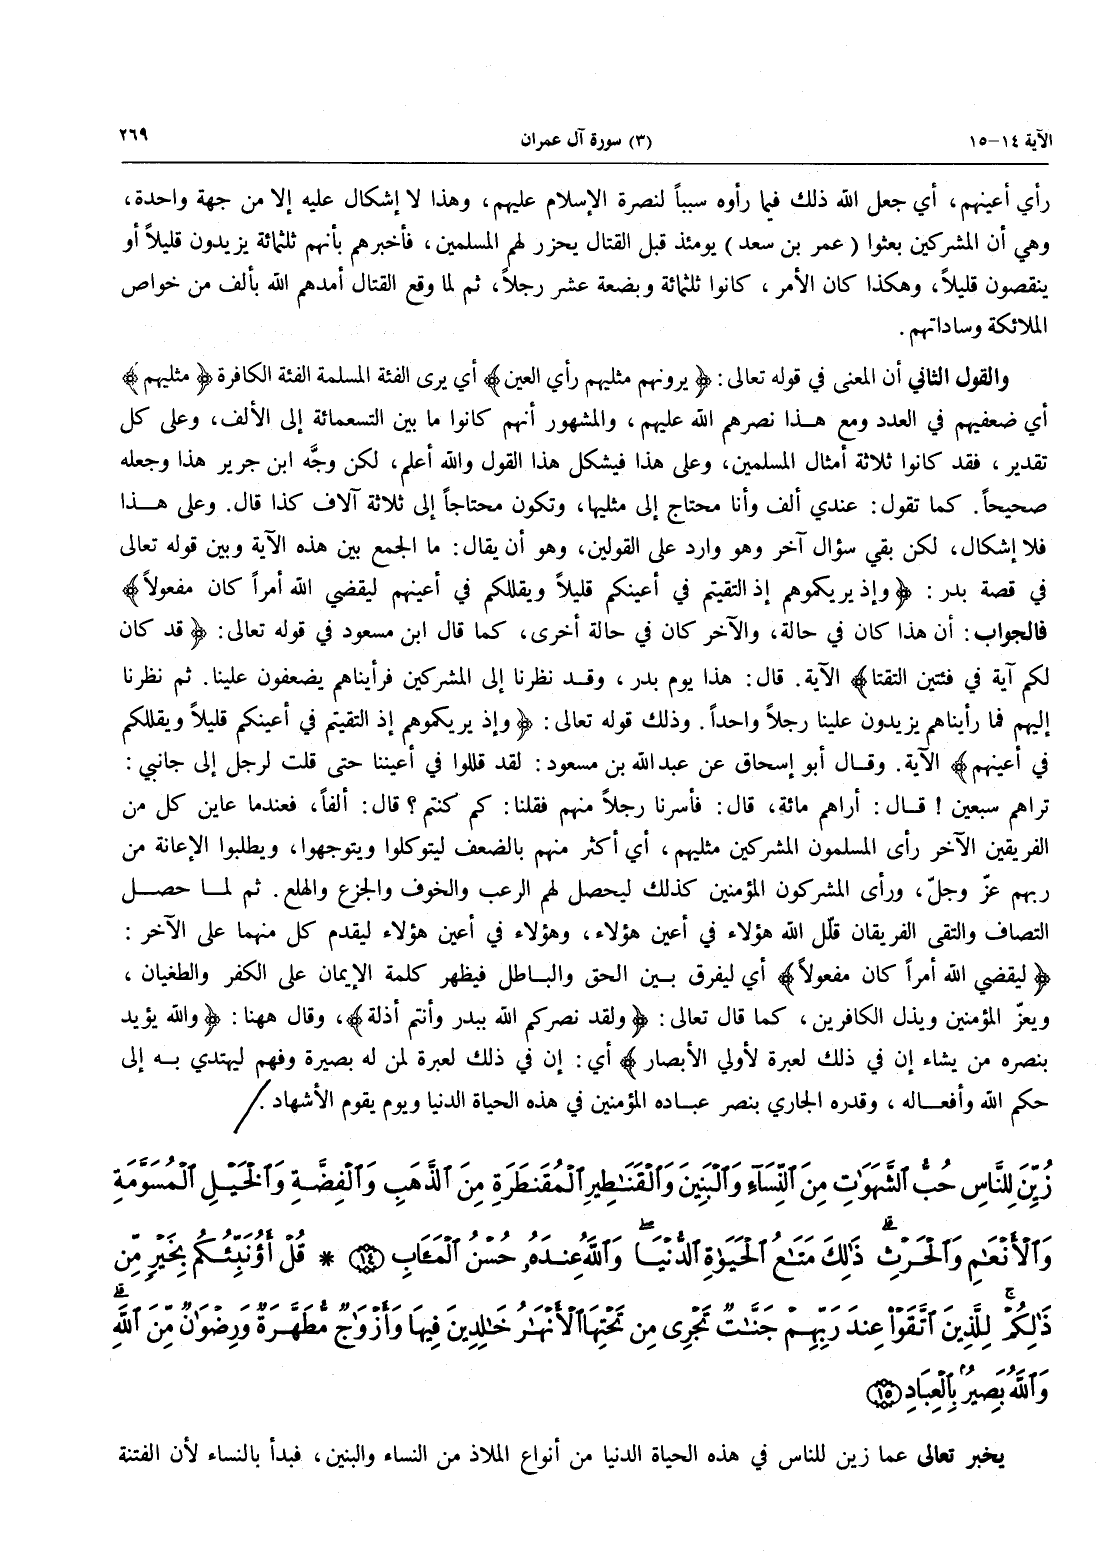 الآية ١٤-١٥ (٣) سورة آل عمران ٢٦٩
رأي أعينهم، أي جعل الله ذلك فيما رأوه سبباً لنصرة الإسلام عليهم، وهذا لا إشكال عليه إلا من جهة واحدة،
وهي أن المشركين بعثوا (عمر بن سعد) يومئذ قبل القتال يحزر لهم المسلمين، فأخبرهم بأنهم ثلثمائة يزيدون قليلاً أو
ينقصون قليلاً، وهكذا كان الأمر، كانوا ثلثمائة وبضعة عشر رجلاً، ثم لما وقع القتال أمدهم الله بألف من خواص
الملائكة وساداتهم.
والقول الثاني أن المعنى في قوله تعالى: ﴿يرونهم مثليهم رأي العين﴾ أي يرى الفئة المسلمة الفئة الكافرة ﴿مثليهم﴾
أي ضعفيهم في العدد ومع هذا نصرهم الله عليهم، والمشهور أنهم كانوا ما بين التسعمائة إلى الألف، وعلى كل
تقدير، فقد كانوا ثلاثة أمثال المسلمين، وعلى هذا فيشكل هذا القول والله أعلم، لكن وجَّه ابن جرير هذا وجعله
صحيحاً. كما تقول: عندي ألف وأنا محتاج إلى مثليها، وتكون محتاجاً إلى ثلاثة آلاف كذا قال. وعلى هذا
فلا إشكال، لكن بقي سؤال آخر وهو وارد على القولين، وهو أن يقال: ما الجمع بين هذه الآية وبين قوله تعالى
في قصة بدر: ﴿وإذ يريكموهم إذ التقيتم في أعينكم قليلاً ويقللكم في أعينهم ليقضي الله أمراً كان مفعولاً﴾
فالجواب: أن هذا كان في حالة، والآخر كان في حالة أخرى، كما قال ابن مسعود في قوله تعالى: ﴿قد كان
لكم آية في فئتين التقتا﴾ الآية. قال: هذا يوم بدر، وقد نظرنا إلى المشركين فرأيناهم يضعفون علينا. ثم نظرنا
إليهم فما رأيناهم يزيدون علينا رجلاً واحداً. وذلك قوله تعالى: ﴿وإذ يريكموهم إذ التقيتم في أعينكم قليلاً ويقللكم
في أعينهم﴾ الآية. وقال أبو إسحاق عن عبدالله بن مسعود: لقد قللوا في أعيننا حتى قلت لرجل إلى جانبي:
تراهم سبعين! قال: أراهم مائة، قال: فأسرنا رجلاً منهم فقلنا: كم كنتم؟ قال: ألفاً، فعندما عاين كل من
الفريقين الآخر رأى المسلمون المشركين مثليهم، أي أكثر منهم بالضعف ليتوكلوا ويتوجهوا، ويطلبوا الإعانة من
ربهم عزّ وجلّ، ورأى المشركون المؤمنين كذلك ليحصل لهم الرعب والخوف والجزع والهلع. ثم لما حصل
التصاف والتقى الفريقان قلّل الله هؤلاء في أعين هؤلاء، وهؤلاء في أعين هؤلاء ليقدم كل منهما على الآخر:
﴿ليقضي الله أمراً كان مفعولاً﴾ أي ليفرق بين الحق والباطل فيظهر كلمة الإيمان على الكفر والطغيان،
ويعزّ المؤمنين ويذل الكافرين، كما قال تعالى: ﴿ولقد نصركم الله ببدر وأنتم أذلة﴾، وقال ههنا: ﴿والله يؤيد
بنصره من يشاء إن في ذلك لعبرة لأولي الأبصار﴾ أي: إن في ذلك لعبرة لمن له بصيرة وفهم ليهتدي به إلى
حكم الله وأفعاله، وقدره الجاري بنصر عباده المؤمنين في هذه الحياة الدنيا ويوم يقوم الأشهاد.
زُيِّنَ لِلنَّاسِ حُبُّ ٱلشَّهَوَٰتِ مِنَ ٱلنِّسَآءِ وَٱلْبَنِينَ وَٱلْقَنَٰطِيرِ ٱلْمُقَنطَرَةِ مِنَ ٱلذَّهَبِ وَٱلْفِضَّةِ وَٱلْخَيْلِ ٱلْمُسَوَّمَةِ
وَٱلْأَنْعَٰمِ وَٱلْحَرْثِ ۗ ذَٰلِكَ مَتَٰعُ ٱلْحَيَوٰةِ ٱلدُّنْيَا ۖ وَٱللَّهُ عِندَهُۥ حُسْنُ ٱلْمَـَٔابِ ١٤ * قُلْ أَؤُنَبِّئُكُم بِخَيْرٍ مِّن
ذَٰلِكُمْ ۚ لِلَّذِينَ ٱتَّقَوْا۟ عِندَ رَبِّهِمْ جَنَّٰتٌ تَجْرِى مِن تَحْتِهَا ٱلْأَنْهَٰرُ خَٰلِدِينَ فِيهَا وَأَزْوَٰجٌ مُّطَهَّرَةٌ وَرِضْوَٰنٌ مِّنَ ٱللَّهِ ۗ
وَٱللَّهُ بَصِيرٌۢ بِٱلْعِبَادِ ١٥
يخبر تعالى عما زين للناس في هذه الحياة الدنيا من أنواع الملاذ من النساء والبنين، فبدأ بالنساء لأن الفتنة